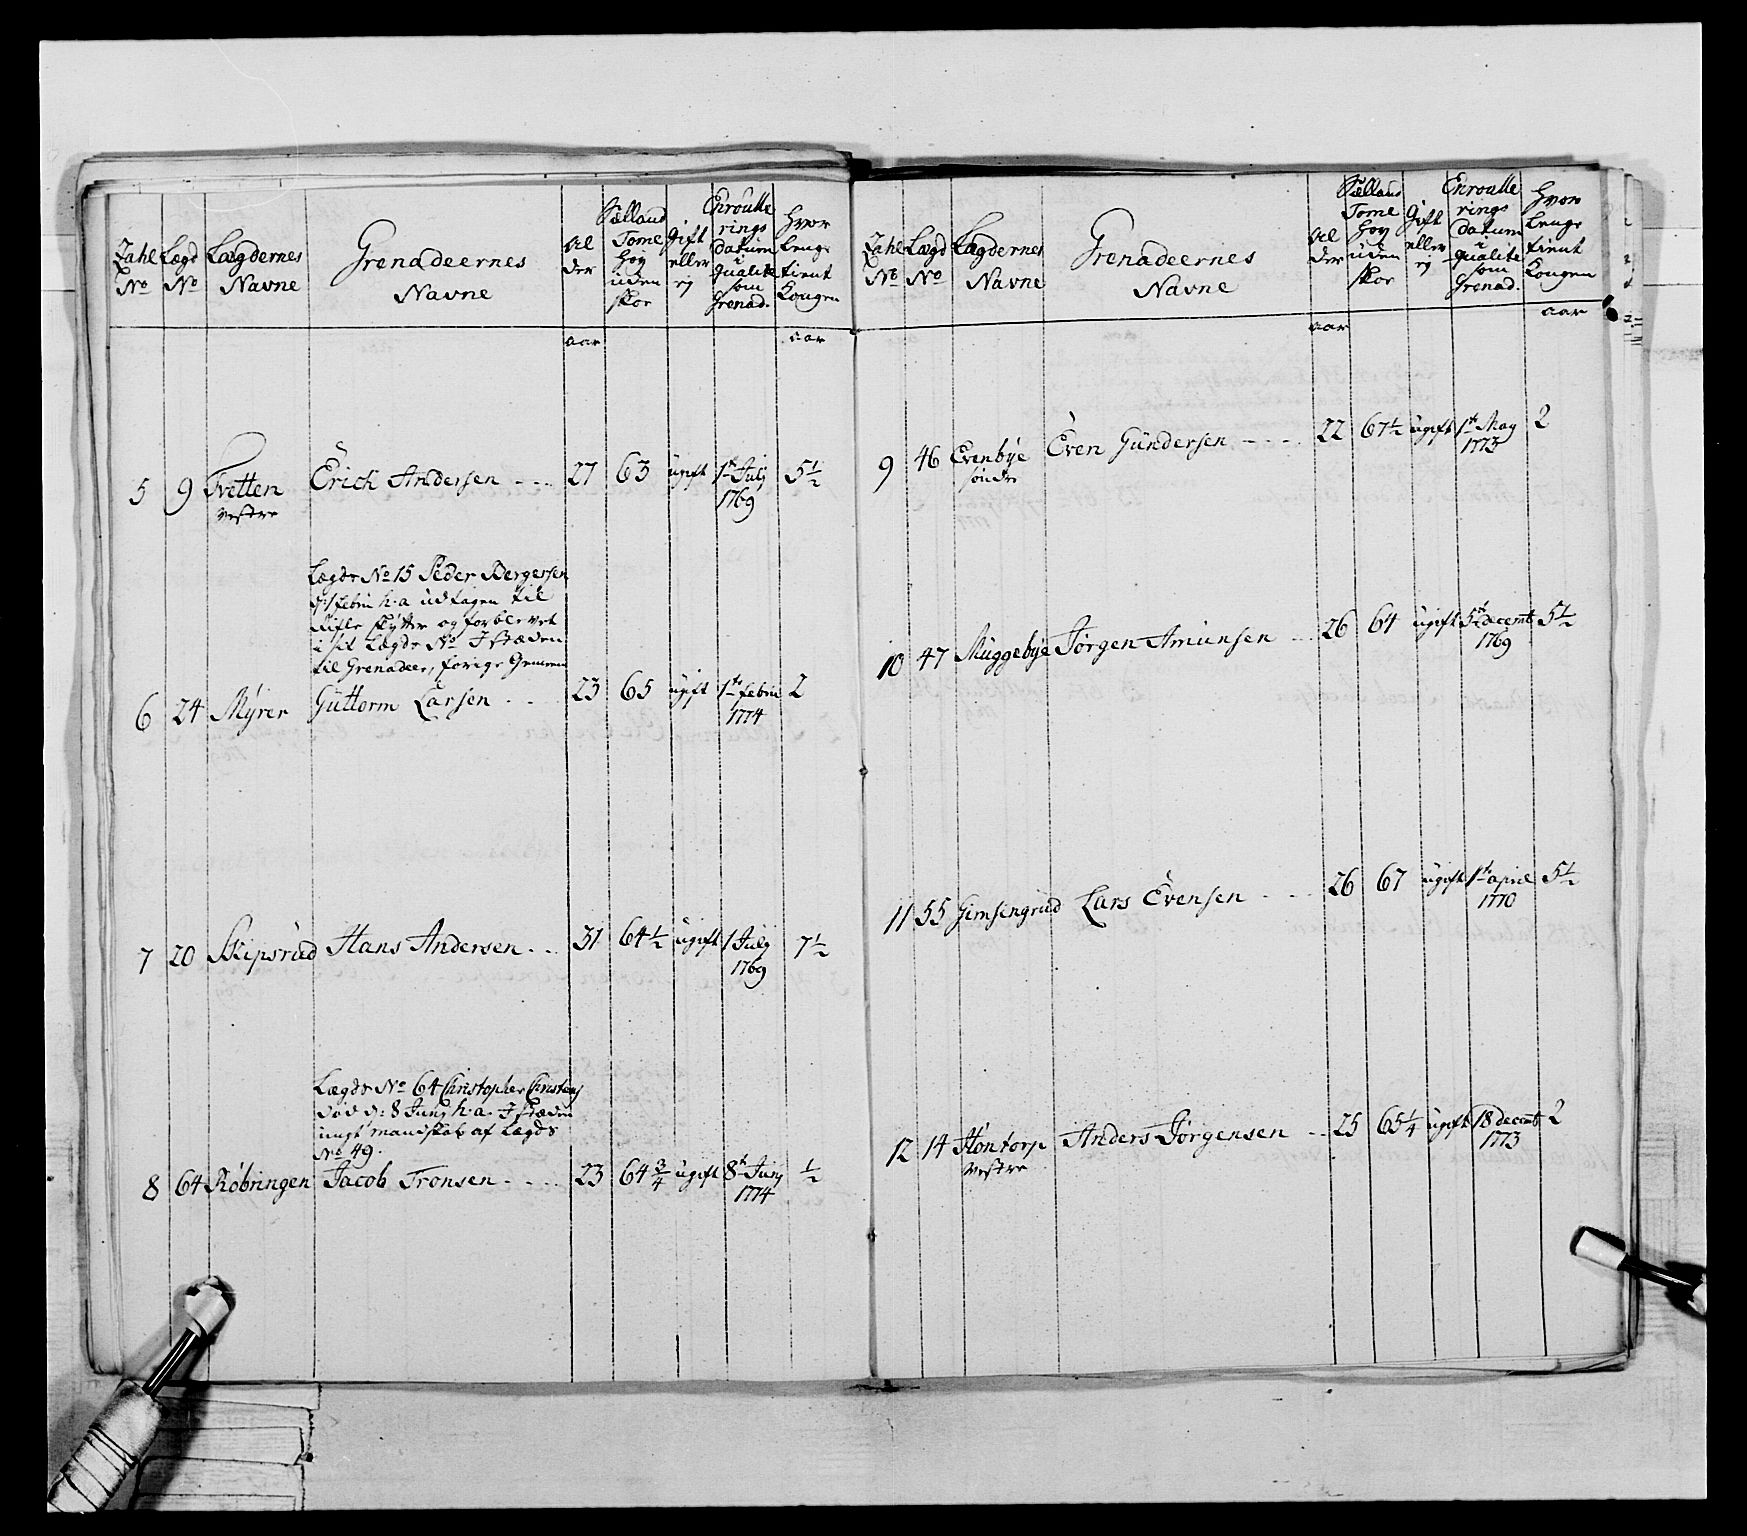 Zahl No | Lægd No | Lægdernes Navne | Grenadeernes Navne | Al der | Siælland Tome høy uden skoe | Gift eller ej | Enroulle rings datum i qualite som Grenad. | Hvor lenge tient Kongen
aar | aar
5 | 9 | Tvetten vestre | Erich Andersen | 27 | 63 | ugift | 1te July 1769 | 5 1/2
Lægds No 15 Peder Bergersen
d: 1 febru h:a udtagen til
Rifle skytter og forblevet
i sit Lægds No I stæden
til Grenadeer, forige Gemeen
6 | 24 | Myrer | Guttorm Larsen | 23 | 65 | ugift | 1te febru 1774 | 2
7 | 20 | Skipsrud | Hans Andersen | 31 | 64 1/2 | ugift | 1 July 1769 | 7 1/2
Lægds No 64 Christopher Christens
død d: 8 Juny h:a. I stæden
ungt mandskab af Lægds
No 49.
8 | 64 | Röbringen | Jacob Tronsen | 23 | 64 3/4 | ugift | 8t Juny 1774 | 1/2
Zahl No | Lægd No | Lægdernes Navne | Grenadeernes Navne | Al der | Siælland Tome høy uden skoe | Gift eller ej | Enroulle rings datum i qualite som Grenad. | Hvor lenge tient Kongen
aar | aar
9 | 46 | Evenbye sönder | Even Gundersen | 22 | 67 1/2 | ugift | 1te May 1773 | 2
10 | 47 | Muggebye | Jørgen Amunsen | 26 | 64 | ugift | 5te decemb 1769 | 5 1/2
11 | 55 | Gimsengrud | Lars Evensen | 26 | 67 | ugift | 1te april 1770 | 5 1/2
12 | 14 | Höntorp vestre | Anders Jörgensen | 25 | 65 1/4 | ugift | 18 decemb 1773 | 2